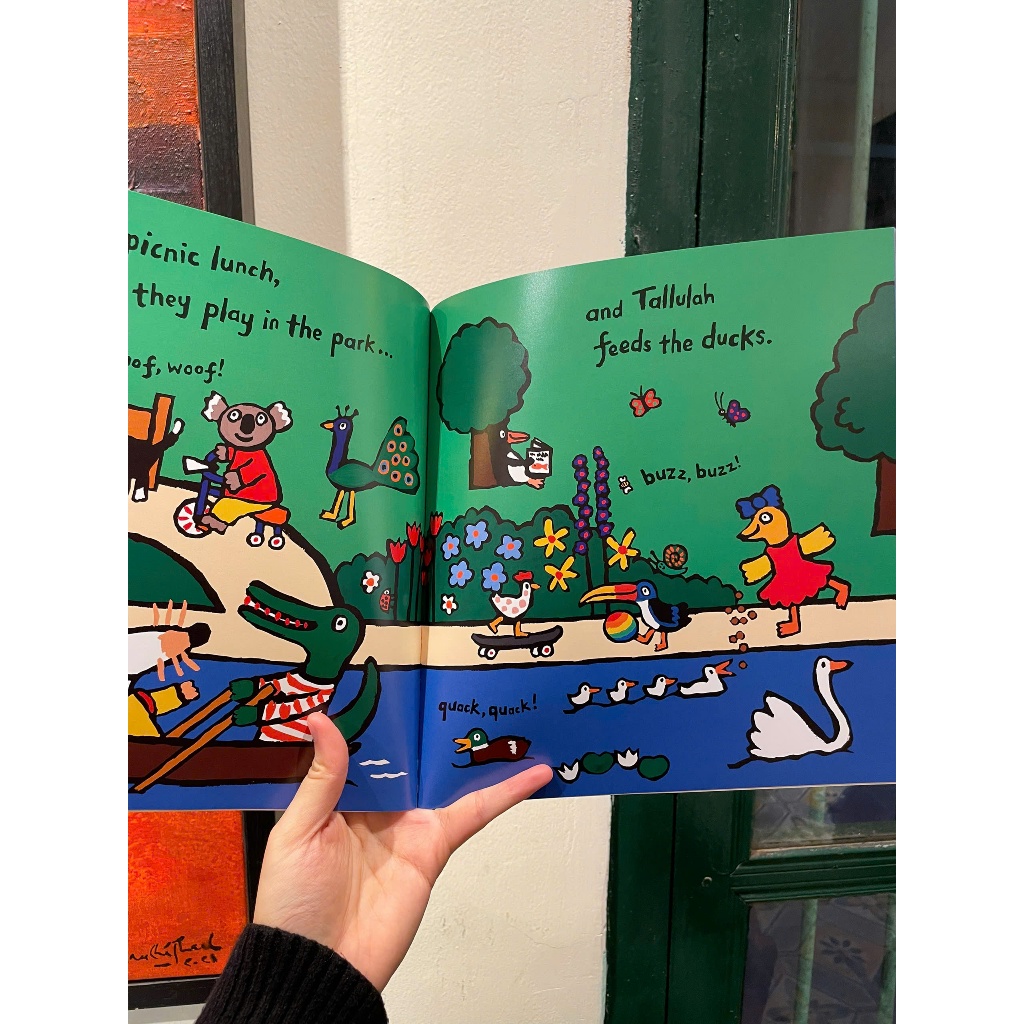 picnic lunch,
they play in the park...
woof, woof!
and Tallulah
feeds the ducks.
buzz, buzz!
quack, quack!